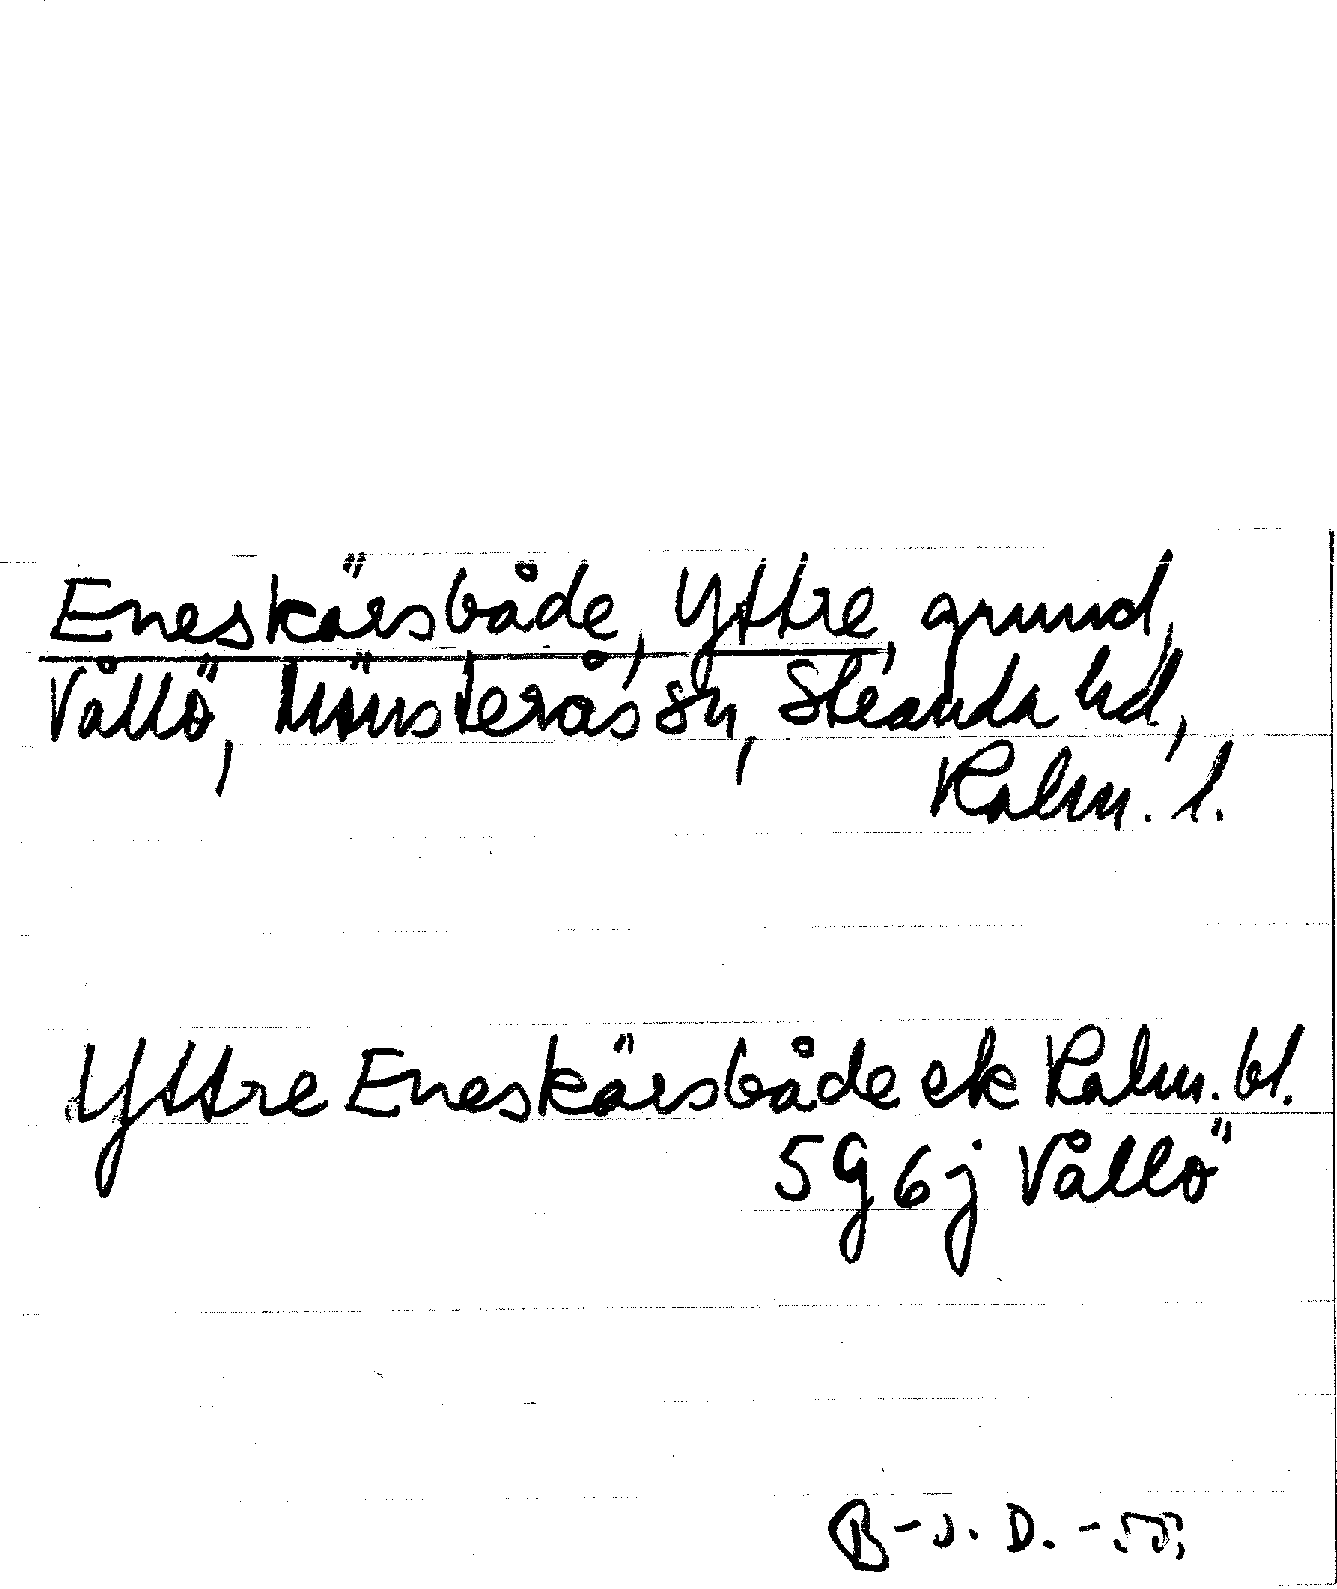 Eneskärsbåde, Yttre, grund,
Vållö, Mönsterås sn, Stranda hd,
Kalm. l.
Yttre Eneskärsbåde ek Kalm. bl.
5G 6j Vållö
B-J. D. -55